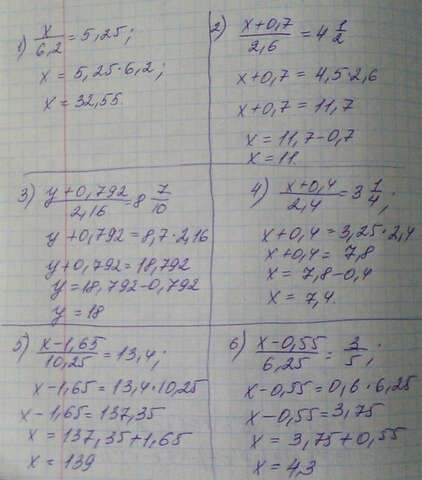 1) x/6,2 = 5,25;
x = 5,25·6,2;
x = 32,55.
2) x+0,7/2,6 = 4 1/2
x+0,7 = 4,5·2,6
x+0,7 = 11,7
x = 11,7-0,7
x = 11
3) y+0,792/2,16 = 8 7/10
y+0,792 = 8,7·2,16
y+0,792 = 18,792
y = 18,792-0,792
y = 18
4) x+0,4/2,4 = 3 1/4;
x+0,4 = 3,25·2,4
x+0,4 = 7,8
x = 7,8-0,4
x = 7,4.
5) x-1,65/10,25 = 13,4;
x-1,65 = 13,4·10,25
x-1,65 = 137,35
x = 137,35+1,65
x = 139
6) x-0,55/6,25 = 3/5;
x-0,55 = 0,6·6,25
x-0,55 = 3,75
x = 3,75+0,55
x = 4,3